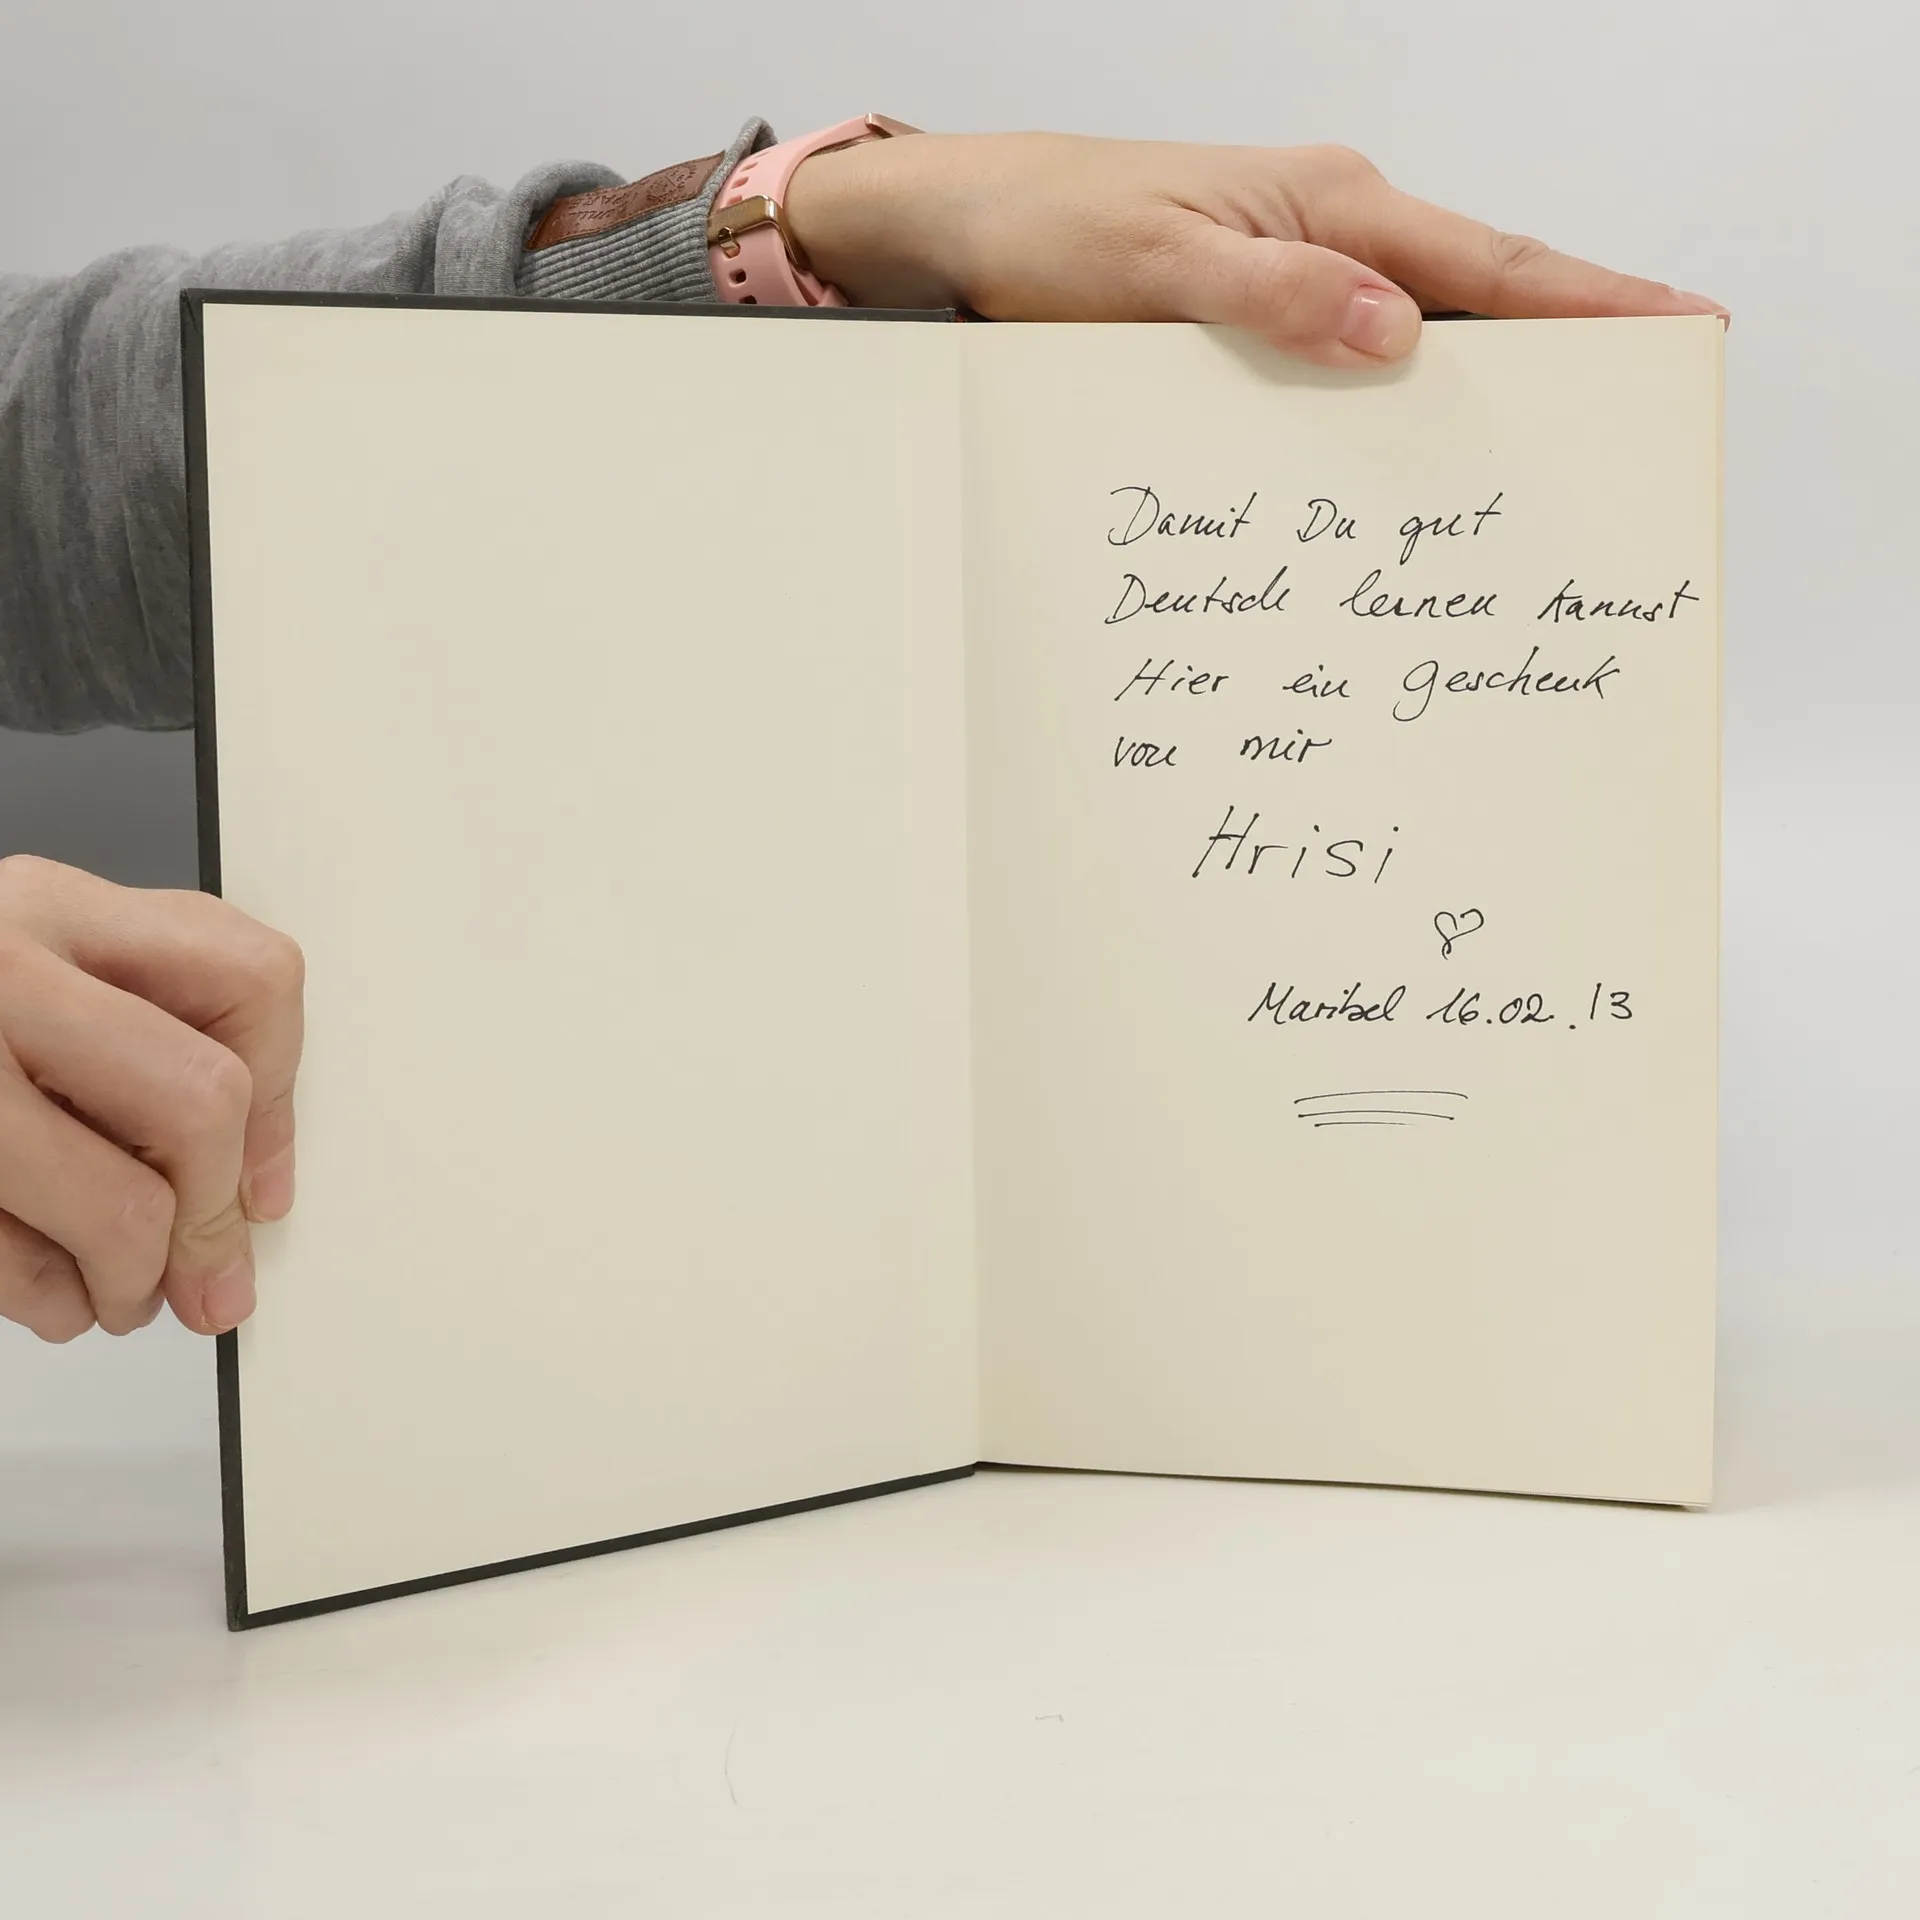 Damit Du gut
Deutsch lernen kannst
Hier ein Geschenk
von mir
Hrisi
Maribel 16.02.13